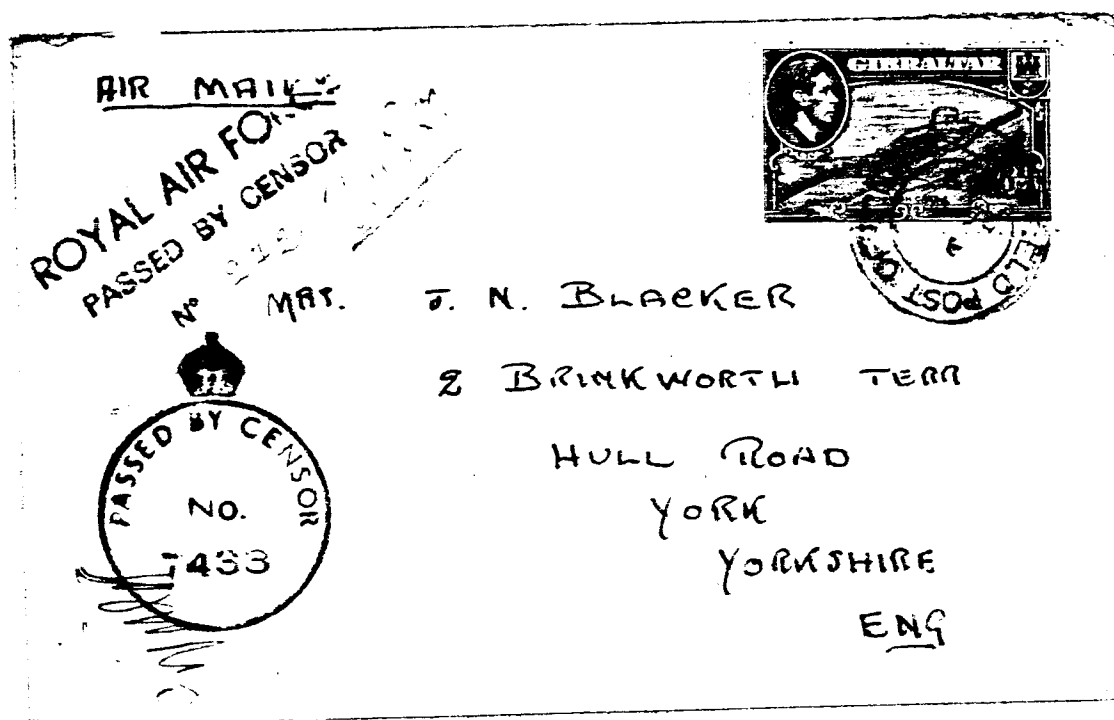 AIR MAIL
GIBRALTAR
ROYAL AIR FORCE
PASSED BY CENSOR
Nº
FIELD POST OF
MRS. J. N. BLACKER
2 BRINKWORTH TERR
HULL ROAD
YORK
YORKSHIRE
ENG
PASSED BY CENSOR
No.
433